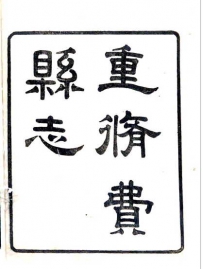 重脩費
縣志